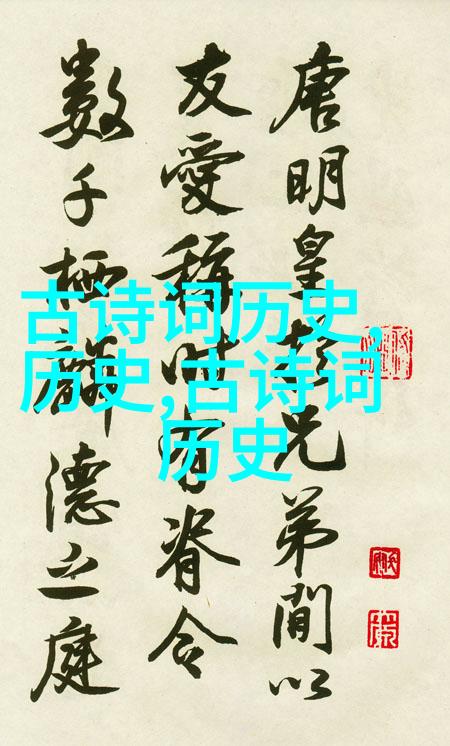 唐明皇於兄弟間以
友愛稱時有脊令
數千栖麟德之庭
古诗词历史,
历史,古诗词
历史